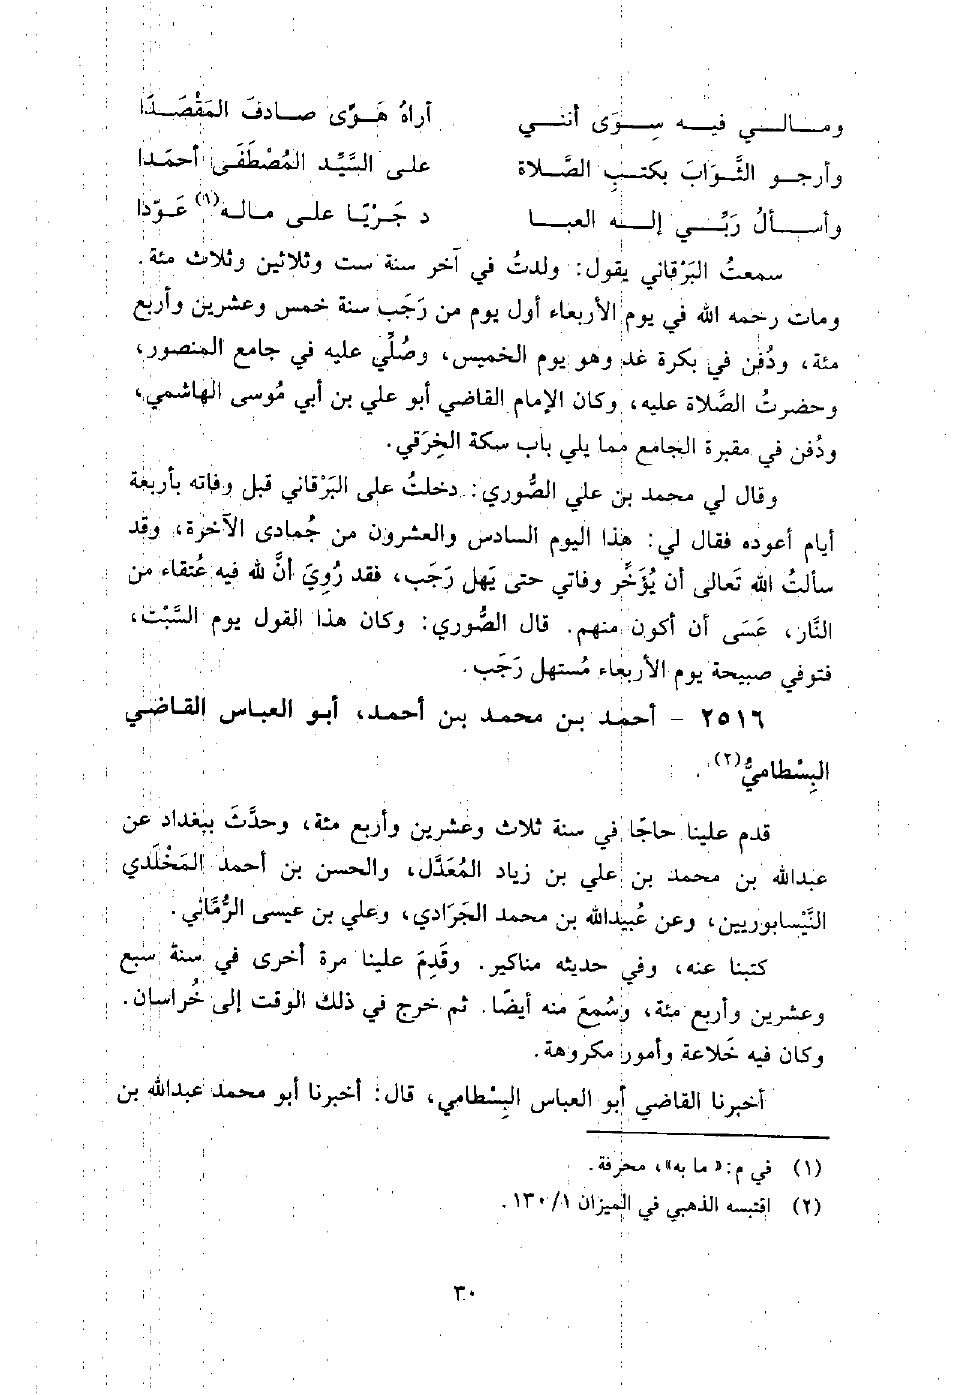 ومالي فيه سِوَى أنني أراهُ هَوًى صادفَ المَقْصَدَا
وأرجو الثَّوَابَ بكتبِ الصَّلاة على السَّيِّد المُصْطَفَى أحمَدا
وأسألُ رَبِّي إله العبا د جَرْيًا على ماله(١) عَوّدا
سمعتُ البَرْقاني يقول: ولدتُ في آخر سنة ست وثلاثين وثلاث مئة.
ومات رحمه الله في يوم الأربعاء أول يوم من رَجَب سنة خمس وعشرين وأربع
مئة، ودُفن في بكرة غد وهو يوم الخميس، وصُلِّي عليه في جامع المنصور،
وحضرتُ الصَّلاة عليه، وكان الإمام القاضي أبو علي بن أبي مُوسى الهاشمي،
ودُفن في مقبرة الجامع مما يلي باب سكة الخِرَقي.
وقال لي محمد بن علي الصُّوري: دخلتُ على البَرْقاني قبل وفاته بأربعة
أيام أعوده فقال لي: هذا اليوم السادس والعشرون من جُمادى الآخرة، وقد
سألتُ الله تَعالى أن يُؤَخِّر وفاتي حتى يَهل رَجَب، فقد رُوِيَ أنَّ لله فيه عُتقاء من
النَّار، عَسَى أن أكون منهم. قال الصُّوري: وكان هذا القول يوم السَّبْت،
فتوفي صبيحة يوم الأربعاء مُستهل رَجَب.
٢٥١٦ - أحمد بن محمد بن أحمد، أبو العباس القاضي
البِسْطاميُّ(٢).
قدم علينا حاجًا في سنة ثلاث وعشرين وأربع مئة، وحدَّثَ ببغداد عن
عبدالله بن محمد بن علي بن زياد المُعَدَّل، والحسن بن أحمد المَخْلَدي
النَّيْسابوريين، وعن عُبيدالله بن محمد الجَرَادي، وعلي بن عيسى الرُّمَّاني.
كتبنا عنه، وفي حديثه مناكير. وقَدِمَ علينا مرة أخرى في سنة سبع
وعشرين وأربع مئة، وسُمِعَ منه أيضًا. ثم خرج في ذلك الوقت إلى خُراسان.
وكان فيه خَلاعة وأمور مكروهة.
أخبرنا القاضي أبو العباس البِسْطامي، قال: أخبرنا أبو محمد عبدالله بن
(١) في م: «ما به»، محرفة.
(٢) اقتبسه الذهبي في الميزان ١/ ١٣٠.
٣٠